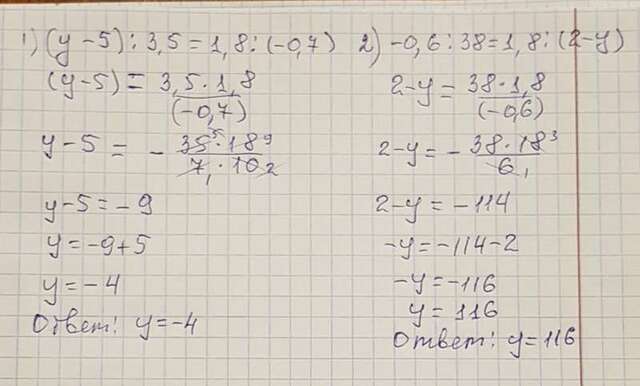 1) (y-5):3,5=1,8:(-0,7)
(y-5)=3,5·1,8/(-0,7)
y-5=-35⁵·18⁹/7₁·10₂
y-5=-9
y=-9+5
y=-4
Ответ: y=-4
2) -0,6:38=1,8:(2-y)
2-y=38·1,8/(-0,6)
2-y=-38·18³/6₁
2-y=-114
-y=-114-2
-y=-116
y=116
Ответ: y=116